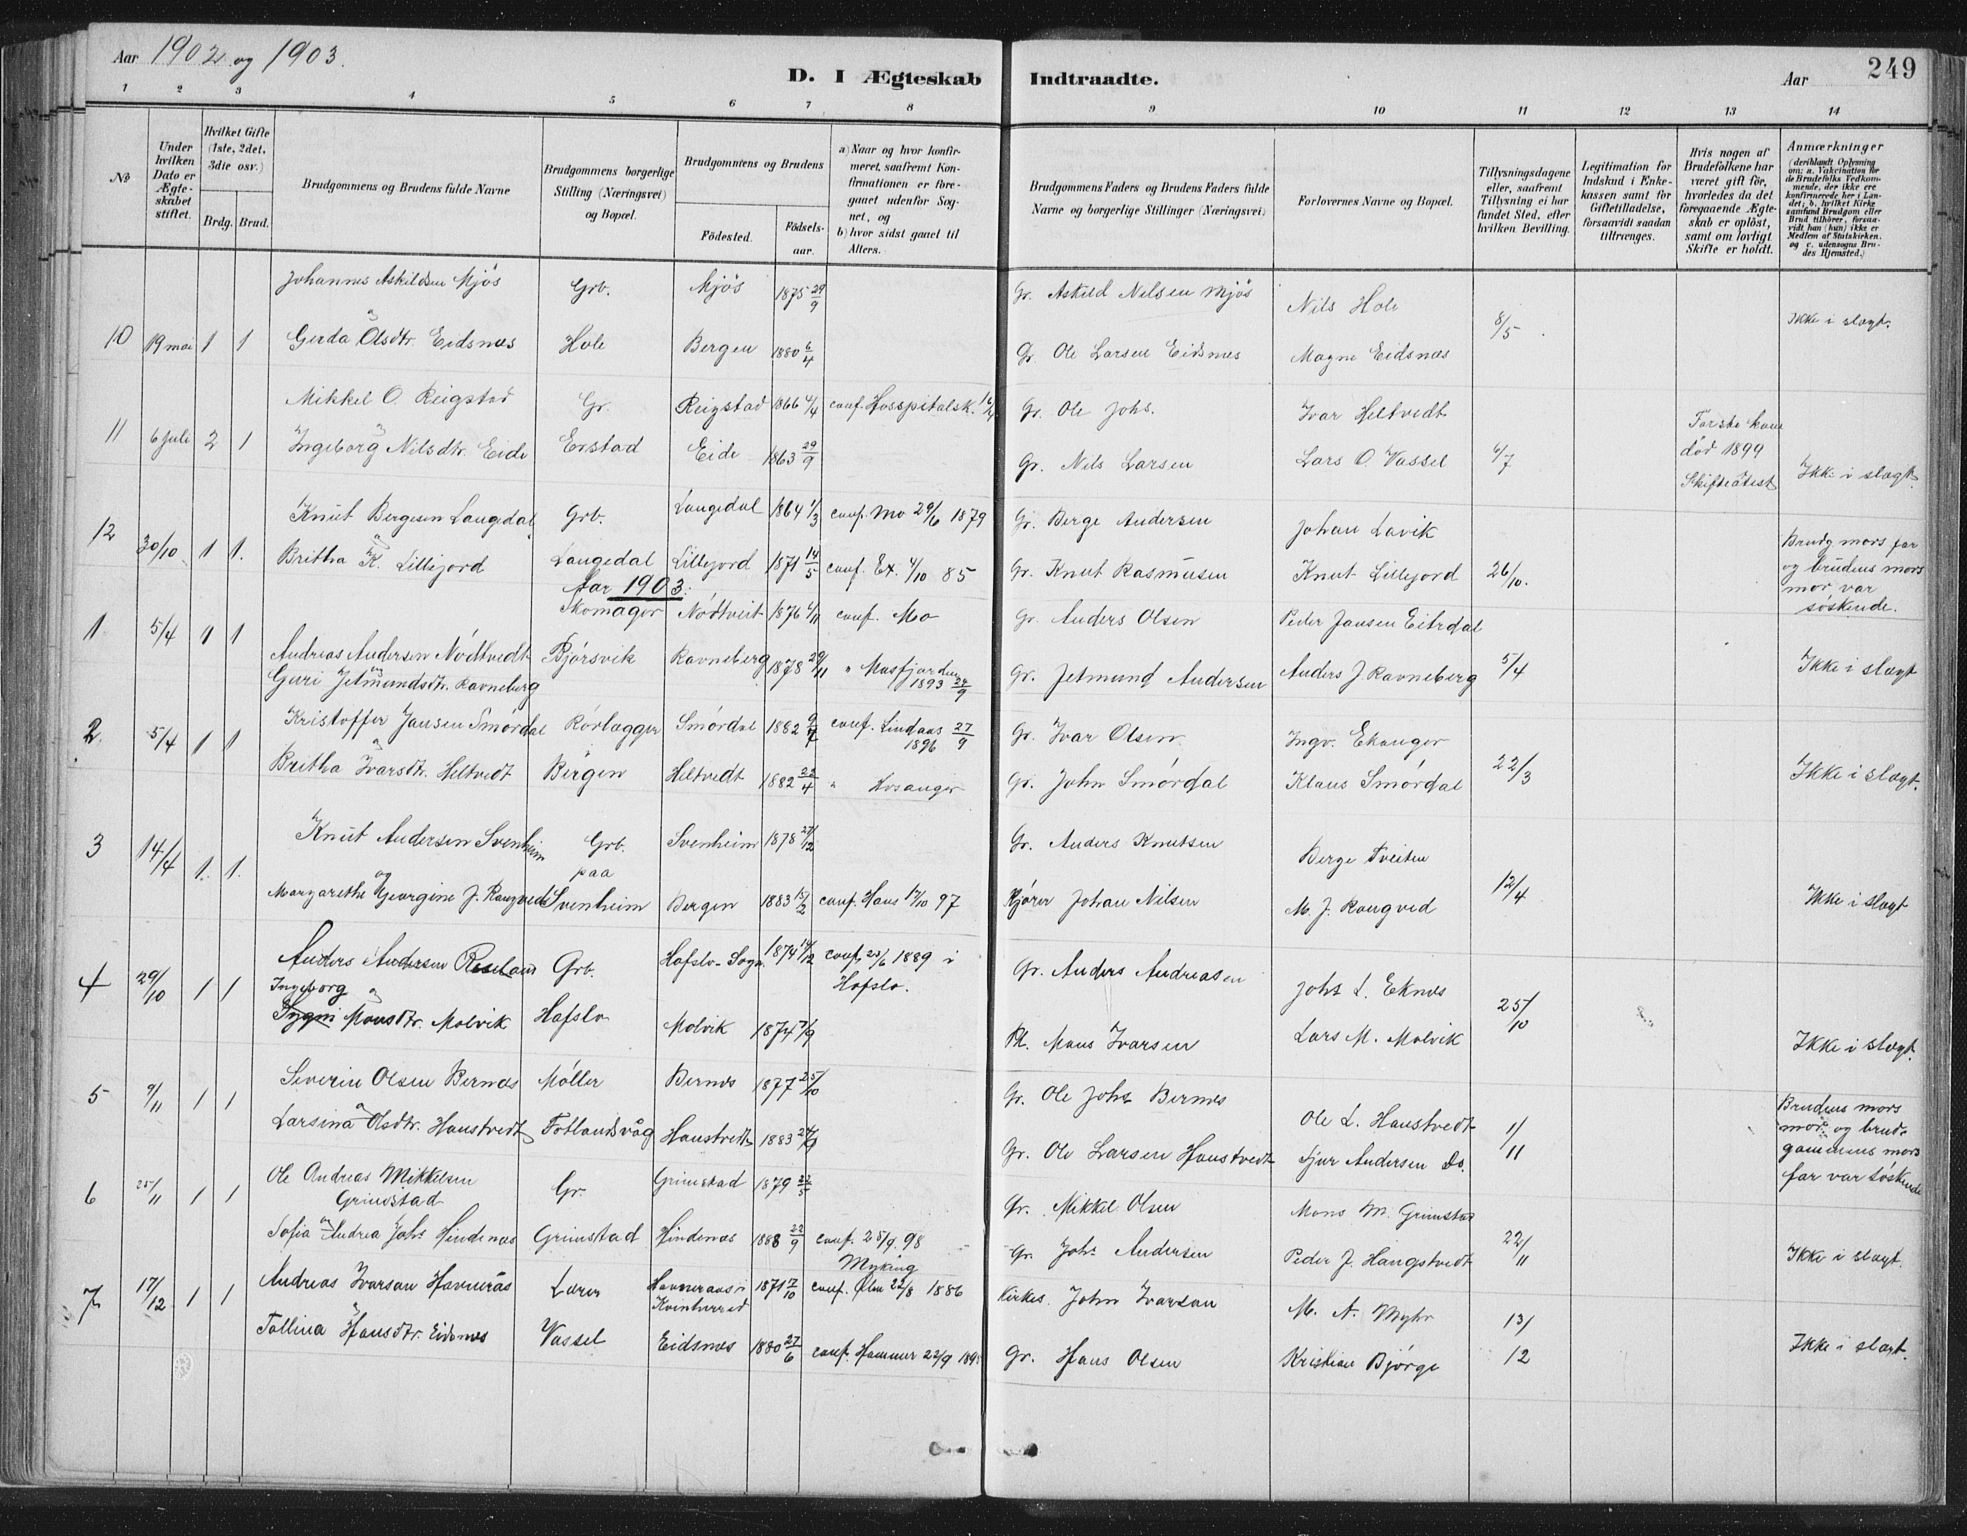 Aar 1902 og 1903.
D. I Ægteskab Indtraadte.
Aar 249
1 2 3 4 5 6 7 8 9 10 11 12 13 14
No
Under hvilken Dato er Ægteskabet stiftet.
Hvilket Gifte (1ste, 2det, 3die osv.)
Brdg. Brud.
Brudgommens og Brudens fulde Navne
Brudgommens borgerlige Stilling (Næringsvei) og Bopæl.
Brudgommens og Brudens
Fødested.
Fødselsaar.
a) Naar og hvor konfirmeret, saafremt Konfirmationen er foregaaet udenfor Sognet, og
b) hvor sidst gaaet til Alters.
Brudgommens Faders og Brudens Faders fulde Navne og borgerlige Stillinger (Næringsvei)
Forlovernes Navne og Bopæl.
Tillysningsdagene eller, saafremt Tillysning ei har fundet Sted, efter hvilken Bevilling.
Legitimation for Indskud i Enkekassen samt for Giftetilladelse, forsaavidt saadan tiltrænges.
Hvis nogen af Brudefolkene har været gift før, hvorledes da det foregaaende Ægteskab er opløst, samt om lovligt Skifte er holdt.
Anmærkninger
(deriblandt Oplysning om: a. Vakcination for de Brudefolks Vedkommende, der ikke ere konfirmerede her i Landet; b. hvilket Kirkesamfund Brudgom eller Brud tilhører, forsaavidt han (hun) ikke er Medlem af Statskirken, og c. udensogns Brudes Hjemsted.)
Johannes Askildsen Mjøs Grb. Mjøs 1875 29/9 Gr. Askild Nilsen Mjøs Nils Hole
10 19 mai 1 1 8/5 Ikke i slægt.
og
Gerda Olsdtr. Eidsnes Hole Bergen 1880 6/4 Gr. Ole Larsen Eidsnes Magne Eidsnæs
Mikkel O. Reigstad Gr. Reigstad 1866 4/4 conf. Hosspitalsk. Gr. Ole Johs. Ivar Heltvedt
11 6 juli 2 1 6/7 Første kone død 1899 Skifteattest Ikke i slægt.
og
Ingeborg Nilsdtr. Eide Erstad Eide 1863 29/9 Gr. Nils Larsen Lars O. Vassel
Knut Bergesen Langedal Grb. Langedal 1864 1/3 conf. Mo 29/6 1879 Gr. Berge Andersen Johan Lavik
12 30/10 1 1. 26/10. Brudg mors far og brudens mors mor var søskende.
og
Britha K. Lillejord Langedal Lillejord 1871 14/5 conf. Ex. 4/10 85 Gr. Knut Rasmusen Knut Lillejord
Aar 1903:
1 5/4 1 1 Skomager Nødtveit 1876 4/11 conf. Mo Gr. Anders Olsen Peder Jansen Eitrdal
Andreas Andersen Nødtvedt
og
Guri Jetmundsdtr. Ravneberg Bjørsvik Ravneberg 1878 29/11 " Masfjorden 1893 24/9 Gr. Jetmund Andersen Anders J Ravneberg 5/4 Ikke i slægt
2. 5/4 1 1 Kristoffer Jansen Smørdal Rørlægger Smørdal 1882 9/7 conf. Lindaas 1896 27/9 Gr. Ivar Olsen. Ingv. Ekanger
og
Britha Ivarsdtr. Heltvedt Bergen Heltvedt 1882 22/4 " Hosanger Gr. John Smørdal Klaus Smørdal 22/3 Ikke i slægt.
3 14/4 1. 1. Knut Andersen Svenheim Grb. paa Svenheim 1878 27/12 Gr. Anders Knutsen Berge Tveiten
og
Margarethe Georgine J. Rongved Svenheim Bergen 1883 15/2 conf. Haus 17/10 97 Kjører Johan Nilsen M. J. Rongved 12/4 Ikke i slægt
4 29/10 1 1 Anders Andersen Røseland Grb. Hafslo-Sogn 1874 14/12 conf. 23/6 1889 i Hafslo. Gr. Anders Andreasen Johs L. Eknes
Ingeborg
og
Mons dtr. Molvik Hafslo Molvik 1874 7/9 Mons Ivarsen Lars M. Molvik 25/10 Ikke i slægt.
5 9/11 1 1 Severin Olsen Bernæs Møller Bernes 1877 25/10 Gr. Ole Johs Bernes Ole L. Haustvedt
og
Larsina Olsdtr. Haustvedt Totlandsvåg Haustvedt 1883 24/9 Gr. Ole Larsen Haustvedt Sjur Andersen Do. 1/11 Brudens mors mor og brudgommens mors far var søskende
6 25/11 1 1 Ole Andreas Mikkelsen Grimstad Gr. Grimstad 1879 22/5 Gr. Mikkel Olsen Mons M. Grimstad
og
Sofia Andrea Johs Hindenæs Grimstad Hindenæs 1888 22/9 conf. 25/9. 98 Myking Gr. Johs Andersen Peder J. Hangstvedt 22/11 Ikke i slægt.
7 17/12 1 1 Andreas Ivarson Havnerås Lærer Havneraas i Kvinherred 1871 7/10 conf. Ølen 22/8 1886 Kirkes. John Ivarson M. A. Myhr
og
Tollina Hansdtr. Eidsnes Vassel Eidsnæs 1880 27/6 conf. Hammer 22/9 Gr. Hans Olsen Kristian Bjørge 13/12 Ikke i slægt.